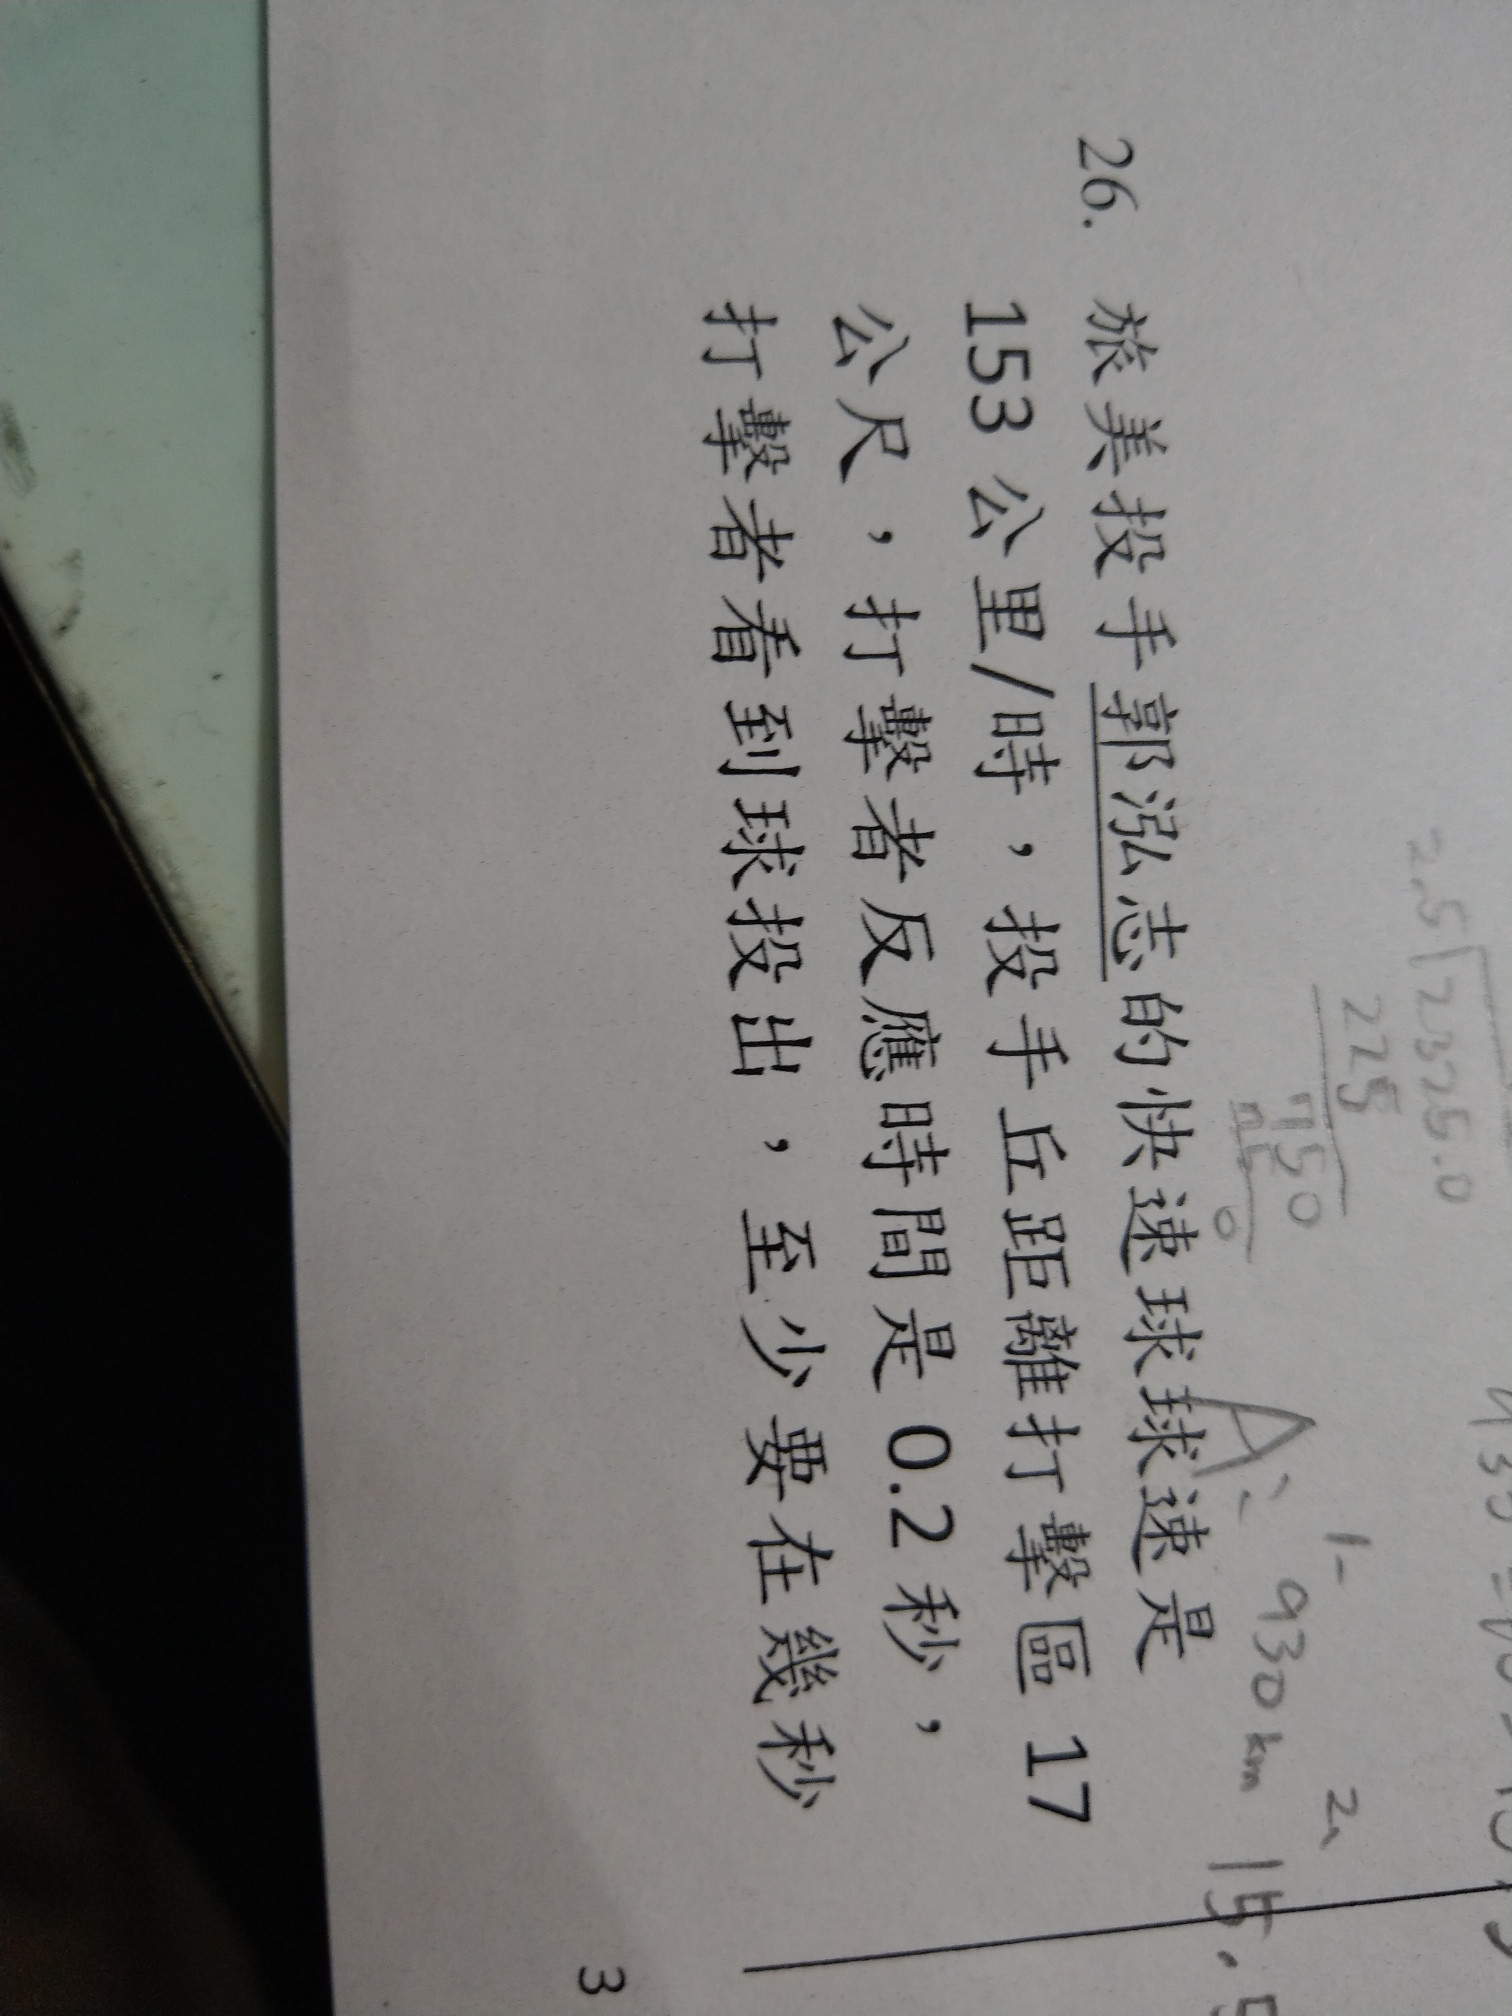 2.5 2325.0
225
750
0
A: 930km
26. 旅美投手郭泓志的快速球球速是
153 公里/時，投手丘距離打擊區 17
公尺，打擊者反應時間是 0.2 秒，
打擊者看到球投出，至少要在幾秒
3